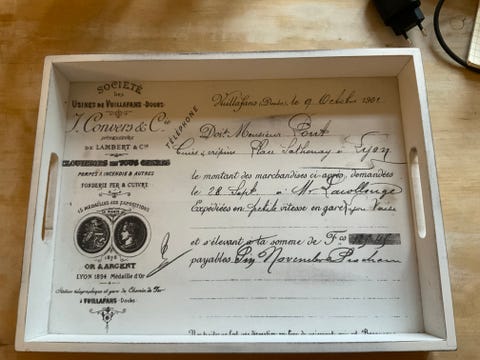 SOCIÉTÉ
DES
USINES DE VUILLAFANS-DOUBS
J. Convers & Cie
DE LAMBERT & Cie
TÉLÉPHONE
CLOUTERIES EN TOUS GENRES
POMPES A INCENDIE & AUTRES
FONDERIE FER & CUIVRE
15 MÉDAILLES AUX EXPOSITIONS
1878
OR & ARGENT
LYON 1894 Médaille d'Or
Station télégraphique et gare de Chemin de Fer
à VUILLAFANS-Doubs
Vuillafans (Doubs), le 9 Octobre 1901
Doit Monsieur Pont
Cuirs & crépins Place Sathonay à Lyon
le montant des marchandises ci-après, demandées
le 28 Sept. à Mr
Expédiées en petite vitesse en gare Lyon Vaise
et s'élevant à la somme de Fcs
payables Fin Novembre Prochain